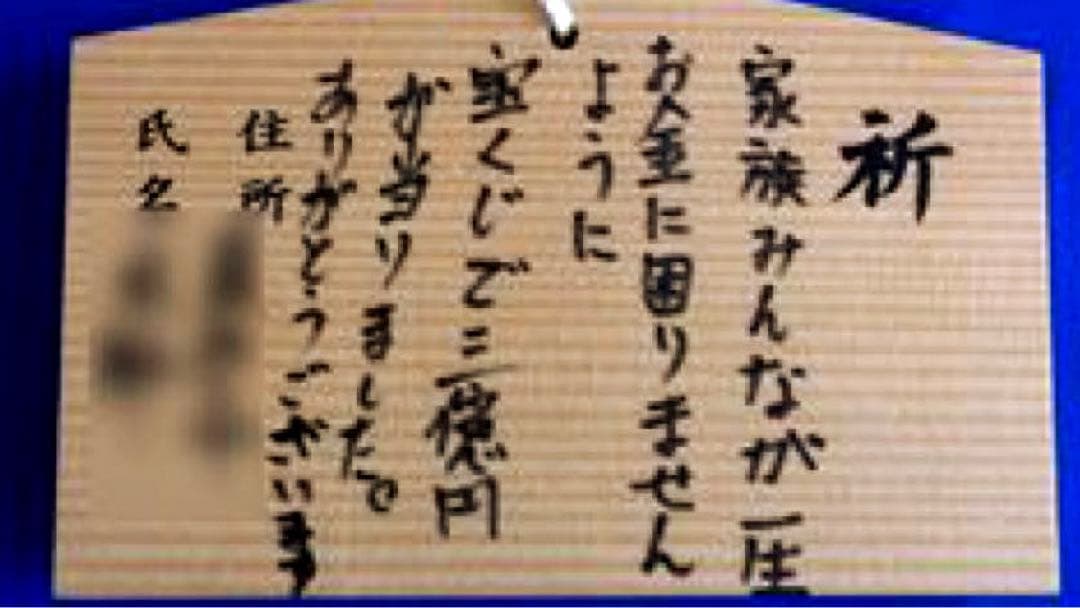 祈
家族みんなが一生
お金に困りません
ように
宝くじで三億円
が当りました。
ありがとうございます
住所
氏名